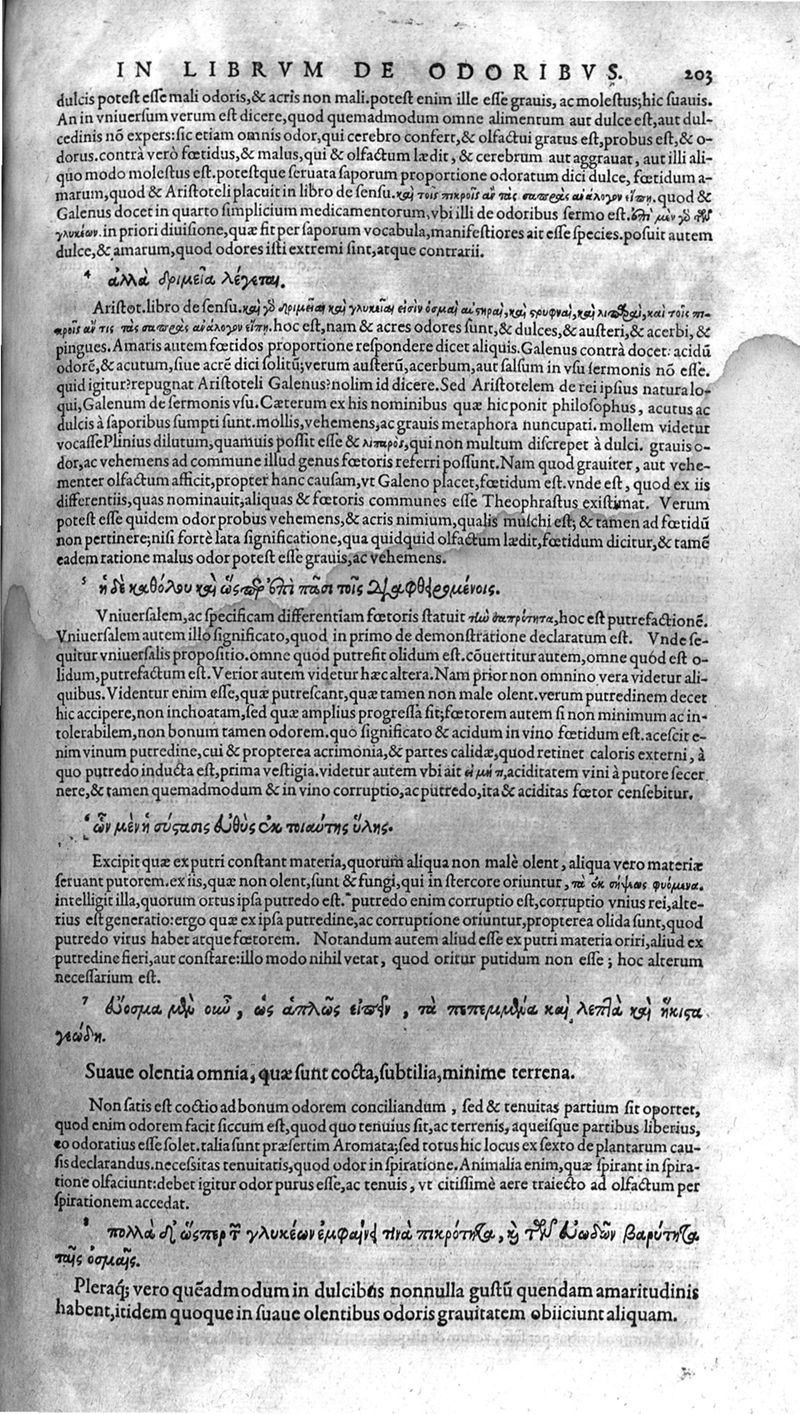 IN LIBRVM DE ODORIBVS. 203
dulcis potest esse mali odoris,& acris non mali.potest enim ille esse grauis, ac molestus;hic suauis.
An in vniuersum verum est dicere,quod quemadmodum omne alimentum aut dulce est,aut dul-
cedinis nō expers:sic etiam omnis odor,qui cerebro confert,& olfactui gratus est,probus est,& o-
dorus.contrà verò fœtidus,& malus,qui & olfactum lædit, & cerebrum aut aggrauat, aut illi ali-
quo modo molestus est.potestque seruata saporum proportione odoratum dici dulce, fœtidum a-
marum,quod & Aristoteli placuit in libro de sensu.καὶ τοῖς πικροῖς ἂν τὰς σαπρὰς ἀνάλογον εἴπῃ.quod &
Galenus docet in quarto simplicium medicamentorum,vbi illi de odoribus sermo est.ἐπὶ μὲν γὸ τῶν
γλυκέων.in priori diuisione,quæ fit per saporum vocabula,manifestiores ait esse species.posuit autem
dulce,& amarum,quod odores isti extremi sint,atque contrarii.
4 ἀλλὰ δριμεῖα λέγεται.
Aristot.libro de sensu.καὶ γὸ δριμεῖαι καὶ γλυκεῖαι εἰσὶν ὀσμαὶ αὐστηραὶ,καὶ στρυφναὶ,καὶ λιπαραὶ,καὶ τοῖς πι-
κροῖς ἄν τις τὰς σαπρὰς ἀνάλογον εἴπῃ.hoc est,nam & acres odores sunt,& dulces,& austeri,& acerbi, &
pingues. Amaris autem fœtidos proportione respondere dicet aliquis.Galenus contrà docet: acidū
odorē,& acutum,siue acrē dici solitū;verum austerū,acerbum,aut salsum in vsu sermonis nō esse.
quid igitur?repugnat Aristoteli Galenus?nolim id dicere.Sed Aristotelem de rei ipsius natura lo-
qui,Galenum de sermonis vsu.Cæterum ex his nominibus quæ hic ponit philosophus, acutus ac
dulcis à saporibus sumpti sunt.mollis,vehemens,ac grauis metaphora nuncupati. mollem videtur
vocasse Plinius dilutum,quamuis possit esse & λιπαρὸς,qui non multum discrepet à dulci. grauis o-
dor,ac vehemens ad commune illud genus fœtoris referri possunt.Nam quod grauiter, aut vehe-
menter olfactum afficit,propter hanc causam,vt Galeno placet,fœtidum est.vnde est, quod ex iis
differentiis,quas nominauit,aliquas & fœtoris communes esse Theophrastus existimat. Verum
potest esse quidem odor probus vehemens,& acris nimium,qualis muschi est; & tamen ad fœtidū
non pertinere;nisi fortè lata significatione,qua quidquid olfactum lædit,fœtidum dicitur,& tamē
eadem ratione malus odor potest esse grauis,ac vehemens.
5 ἡ δὲ καθόλου καὶ ὥσπερ ἐπὶ πᾶσι τοῖς διαφθειρομένοις.
Vniuersalem,ac specificam differentiam fœtoris statuit τὴν σαπρότητα,hoc est putrefactionē.
Vniuersalem autem illo significato,quod in primo de demonstratione declaratum est. Vnde se-
quitur vniuersalis propositio.omne quod putrefit olidum est.cōuertitur autem,omne quod est o-
lidum,putrefactum est.Verior autem videtur hæc altera.Nam prior non omnino vera videtur ali-
quibus.Videntur enim esse,quæ putrescant,quæ tamen non male olent.verum putredinem decet
hic accipere,non inchoatam,sed quæ amplius progressa sit;fœtorem autem si non minimum ac in-
tolerabilem,non bonum tamen odorem.quo significato & acidum in vino fœtidum est.acescit e-
nim vinum putredine,cui & propterea acrimonia,& partes calidæ,quod retinet caloris externi, à
quo putredo inducta est,prima vestigia.videtur autem vbi ait εἰ μή τι,aciditatem vini à putore secer
nere,& tamen quemadmodum & in vino corruptio,ac putredo,ita & aciditas fœtor censebitur.
6 ὧν μὲν ἡ σύστασις εὐθὺς ἐκ τοιαύτης ὕλης.
Excipit quæ ex putri constant materia,quorum aliqua non malè olent, aliqua vero materiæ
seruant putorem.ex iis,quæ non olent,sunt & fungi,qui in stercore oriuntur, τὰ ἐκ σήψεως φυόμενα.
intelligit illa,quorum ortus ipsa putredo est. putredo enim corruptio est,corruptio vnius rei,alte-
rius est generatio:ergo quæ ex ipsa putredine,ac corruptione oriuntur,propterea olida sunt,quod
putredo virus habet atque fœtorem. Notandum autem aliud esse ex putri materia oriri,aliud ex
putredine fieri,aut constare:illo modo nihil vetat, quod oritur putidum non esse; hoc alterum
necessarium est.
7 εὔοσμα μὲν οὖν, ὡς ἁπλῶς εἰπεῖν, τὰ πεπεμμένα καὶ λεπτὰ καὶ ἥκιστα
γεώδη.
Suaue olentia omnia, quæ sunt cocta,subtilia,minime terrena.
Non satis est coctio ad bonum odorem conciliandum, sed & tenuitas partium sit oportet,
quod enim odorem facit siccum est,quod quo tenuius sit,ac terrenis, aqueisque partibus liberius,
eo odoratius esse solet.talia sunt præsertim Aromata;sed totus hic locus ex sexto de plantarum cau-
sis declarandus.necessitas tenuitatis,quod odor in spiratione.Animalia enim,quæ spirant in spira-
tione olfaciunt:debet igitur odor purus esse,ac tenuis, vt citissimè aere traiecto ad olfactum per
spirationem accedat.
8 πολλὰ δ' ὥσπερ τῶν γλυκέων ἐμφαίνει τινὰ πικρότητα, καὶ τῶν εὐωδῶν βαρύτητα
ταῖς ὀσμαῖς.
Pleraq; vero quēadmodum in dulcibus nonnulla gustū quendam amaritudinis
habent,itidem quoque in suaue olentibus odoris grauitatem obiiciunt aliquam.